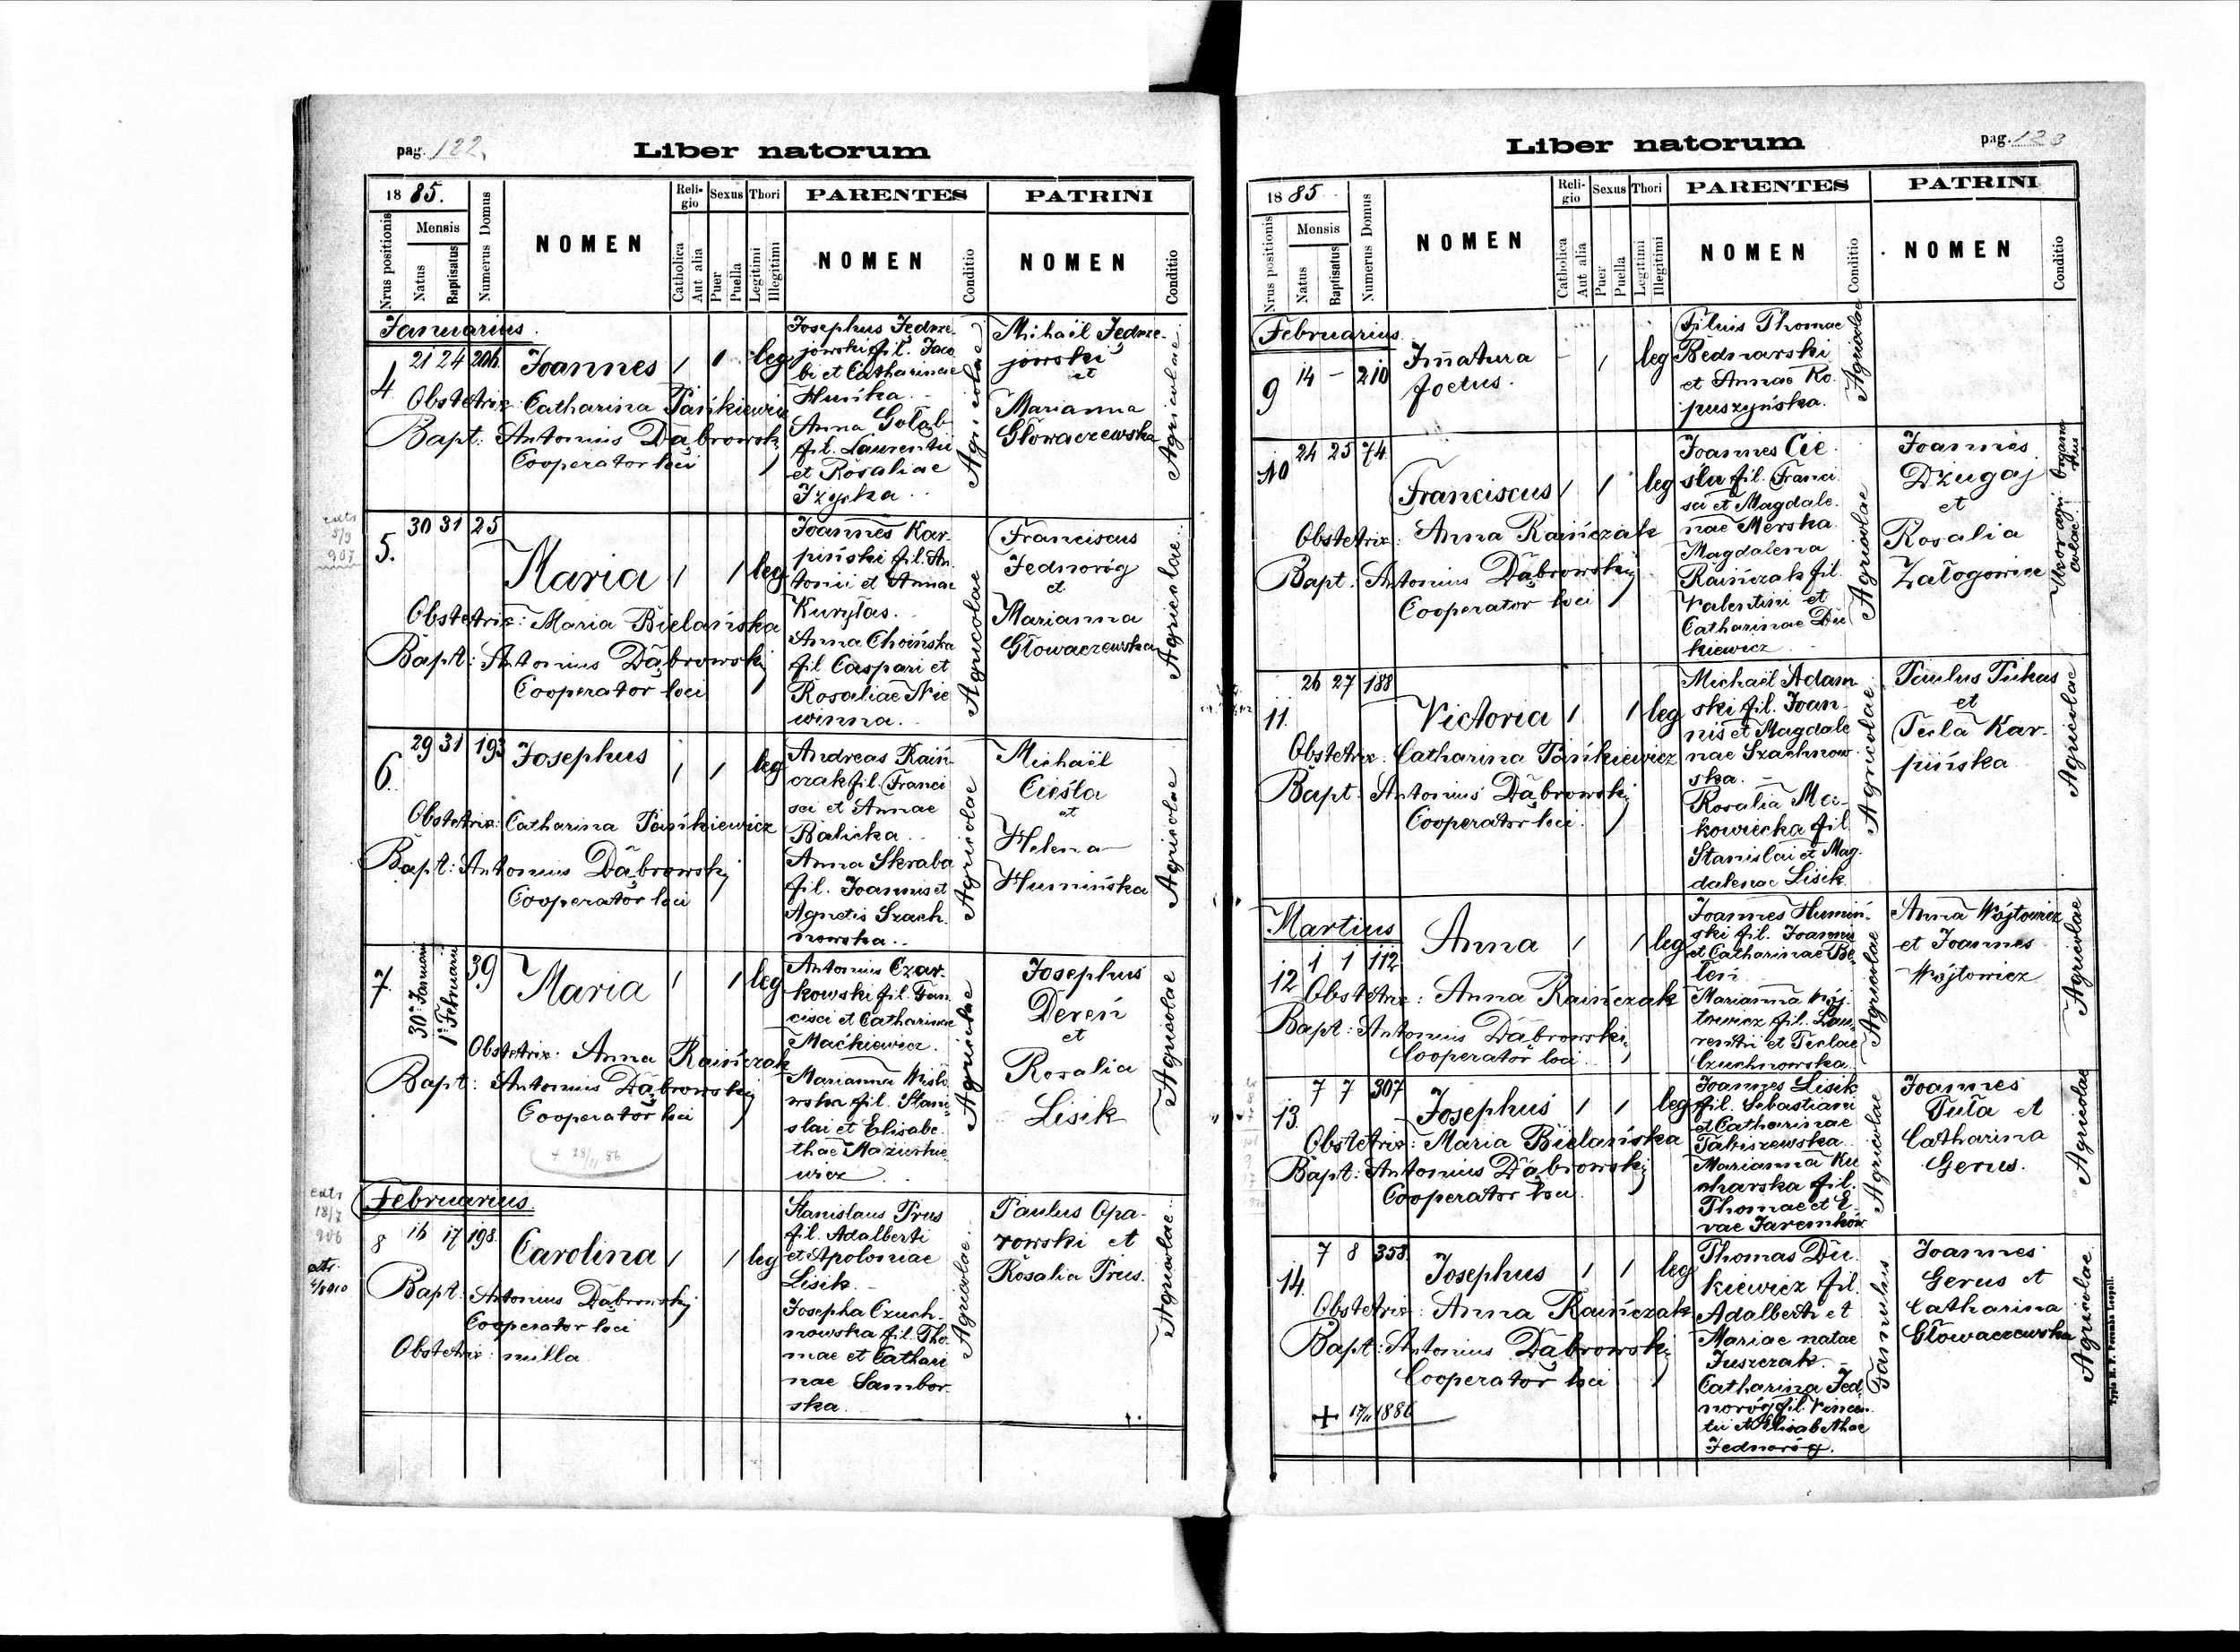 pag. 122.
Liber natorum
18 85.
Nrus positionis
Mensis
Natus
Baptisatus
Numerus Domus
NOMEN
Religio
Catholica
Aut alia
Sexus
Puer
Puella
Thori
Legitimi
Illegitimi
PARENTES
NOMEN
Conditio
PATRINI
NOMEN
Conditio
Januarius.
4 21 24 206. Joannes 1 1 leg
Obstetrix: Catharina Pańkiewicz
Bapt: Antonius Dąbrowski
Cooperator loci
Josephus Jedrze-
jowski fil. Jaco
bi et Catharinae
Huńka.
Anna Gołąb
fil. Laurentii
et Rosaliae
Iżycka.
Agricolae
Mihaël Jedrze-
jowski
et
Marianna
Głowaczewska
Agricolae
5. 30 31 25
Maria 1 1 leg
Obstetrix: Maria Bielańska
Bapt: Antonius Dąbrowski
Cooperator loci
Joannes Kar-
piński fil. An-
tonii et Annae
Kuryłas.
Anna Choińska
fil Caspari et
Rosaliae Nie
winna.
Agricolae
Franciscus
Jednoróg
et
Marianna
Głowaczewska
Agricolae
6. 29 31 193 Josephus 1 1 leg
Obstetrix: Catharina Pańkiewicz
Bapt: Antonius Dąbrowski
Cooperator loci
Andreas Raiń-
czak fil. Franci
sci et Annae
Balicka.
Anna Skraba
fil. Joannis et
Agnetis Szach-
nowska.
Agricolae
Michaël
Cieśla
et
Helena
Humińska
Agricolae
7. 30 Januarii 1 Februarii 39 Maria 1 1 leg
Obstetrix: Anna Raińczak
Bapt: Antonius Dąbrowski
Cooperator loci
Antonius Czar-
kowski fil. Fran
cisci et Catharinae
Maćkiewicz.
Marianna
fil. Stani-
slai et Elisabe-
thae Mazurkie
wicz
Agricolae
Josephus
Dereń
et
Rosalia
Lisik
Agricolae
Februarius.
8 16 17 198. Carolina 1 1 leg
Bapt: Antonius Dąbrowski
Cooperator loci
Obstetrix: nulla
Stanislaus Prus
fil. Adalberti
et Apoloniae
Lisik.
Josepha Czuch-
nowska fil. Tho-
mae et Cathari
nae Sambor-
ska.
Agricolae
Paulus Opa-
rowski et
Rosalia Prus.
Agricolae
Liber natorum
pag. 123
18 85
Nrus positionis
Mensis
Natus
Baptisatus
Numerus Domus
NOMEN
Religio
Catholica
Aut alia
Sexus
Puer
Puella
Thori
Legitimi
Illegitimi
PARENTES
NOMEN
Conditio
PATRINI
NOMEN
Conditio
Februarius.
9 14 – 210 Im̄atura – 1 leg
foetus.
Filius Thomae
Bednarski
et Annae Ko-
puszyńska.
Agricolae
10 24 25 74
Franciscus 1 1 leg
Obstetrix: Anna Raińczak
Bapt: Antonius Dąbrowski
Cooperator loci
Joannes Cie-
śla fil. Franci
sci et Magdale-
nae Merska.
Magdalena
Raińczak fil.
Valentini et
Catharinae Du
kiewicz
Agricolae
Joannes
Dżugaj
et
Rosalia
Załogowicz
11. 26 27 188
Victoria 1 1 leg
Obstetrix: Catharina Pańkiewicz
Bapt: Antonius Dąbrowski
Cooperator loci.
Michaël Adam
ski fil. Joan-
nis et Magdale
nae Szachnow
ska.
Rosalia Ma-
kowiecka fil
Stanislai et Mag-
dalenae Lisik.
Agricolae
Paulus Pukas
et
Tekla Kar-
pińska
Agricolae
Martius
12 1 1 112 Anna 1 1 leg
Obstetrix: Anna Raińczak
Bapt: Antonius Dąbrowski
Cooperator loci
Joannes Humiń-
ski fil. Joannis
et Catharinae Be-
łeń
Marianna Wój-
towicz fil. Lau-
rentii et Teclae
Czuchnowska.
Agricolae
Anna Wójtowicz
et Joannes
Wójtowicz
Agricolae
13. 7 7 307 Josephus 1 1 leg
Obstetrix: Maria Bielańska
Bapt: Antonius Dąbrowski
Cooperator loci
Joannes Lisik
fil. Sebastiani
et Catharinae
Tabiszewska.
Marianna Ku
charska fil.
Thomae et E-
vae Jaremków
Agricolae
Joannes
Tuła et
Catharina
Gerus.
Agricolae
14. 7 8 358. Josephus 1 1 leg
Obstetrix: Anna Raińczak
Bapt: Antonius Dąbrowski
Cooperator loci
+ 17/11 1886
Thomas Du-
kiewicz fil.
Adalberti et
Mariae natae
Juszczak.
Catharina Jed-
noróg fil. Vincen-
tii et Elisabethae
Jednoróg.
Famulus
Joannes
Gerus et
Catharina
Głowaczewska
Agricolae